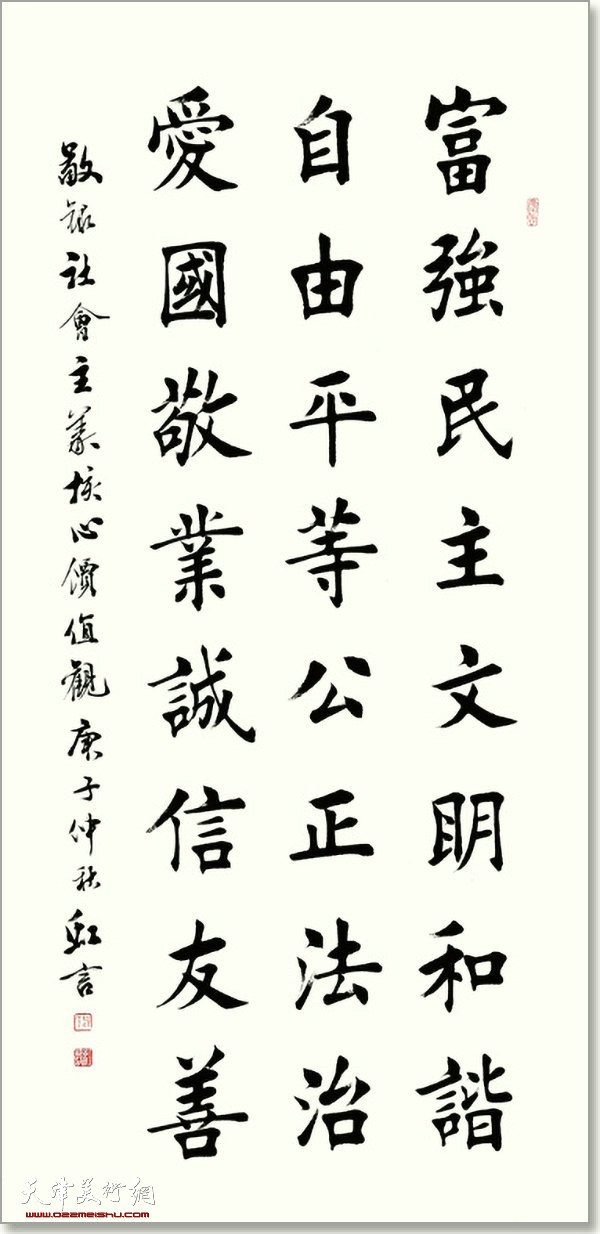 富強民主文明和諧
自由平等公正法治
愛國敬業誠信友善
敬錄社會主義核心價值觀庚子仲秋虹言
天津美術網
www.022meishu.com